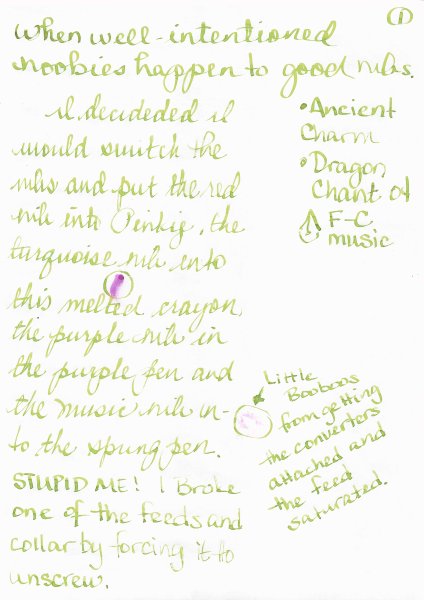 ①
When well-intentioned
noobies happen to good nibs.
I decideded I
would switch the
nibs and put the red
nib into Pinkig, the
turquoise nib into
this melted crayon,
the purple nib in
the purple pen and
the music nib in-
to the spung pen.
STUPID ME! I Broke
one of the feeds and
collar by forcing it to
unscrew.
• Ancient
Charm
• Dragon
Chant of
F-C
music
Little
Booboos
from getting
the converters
attached and
the feed
saturated.